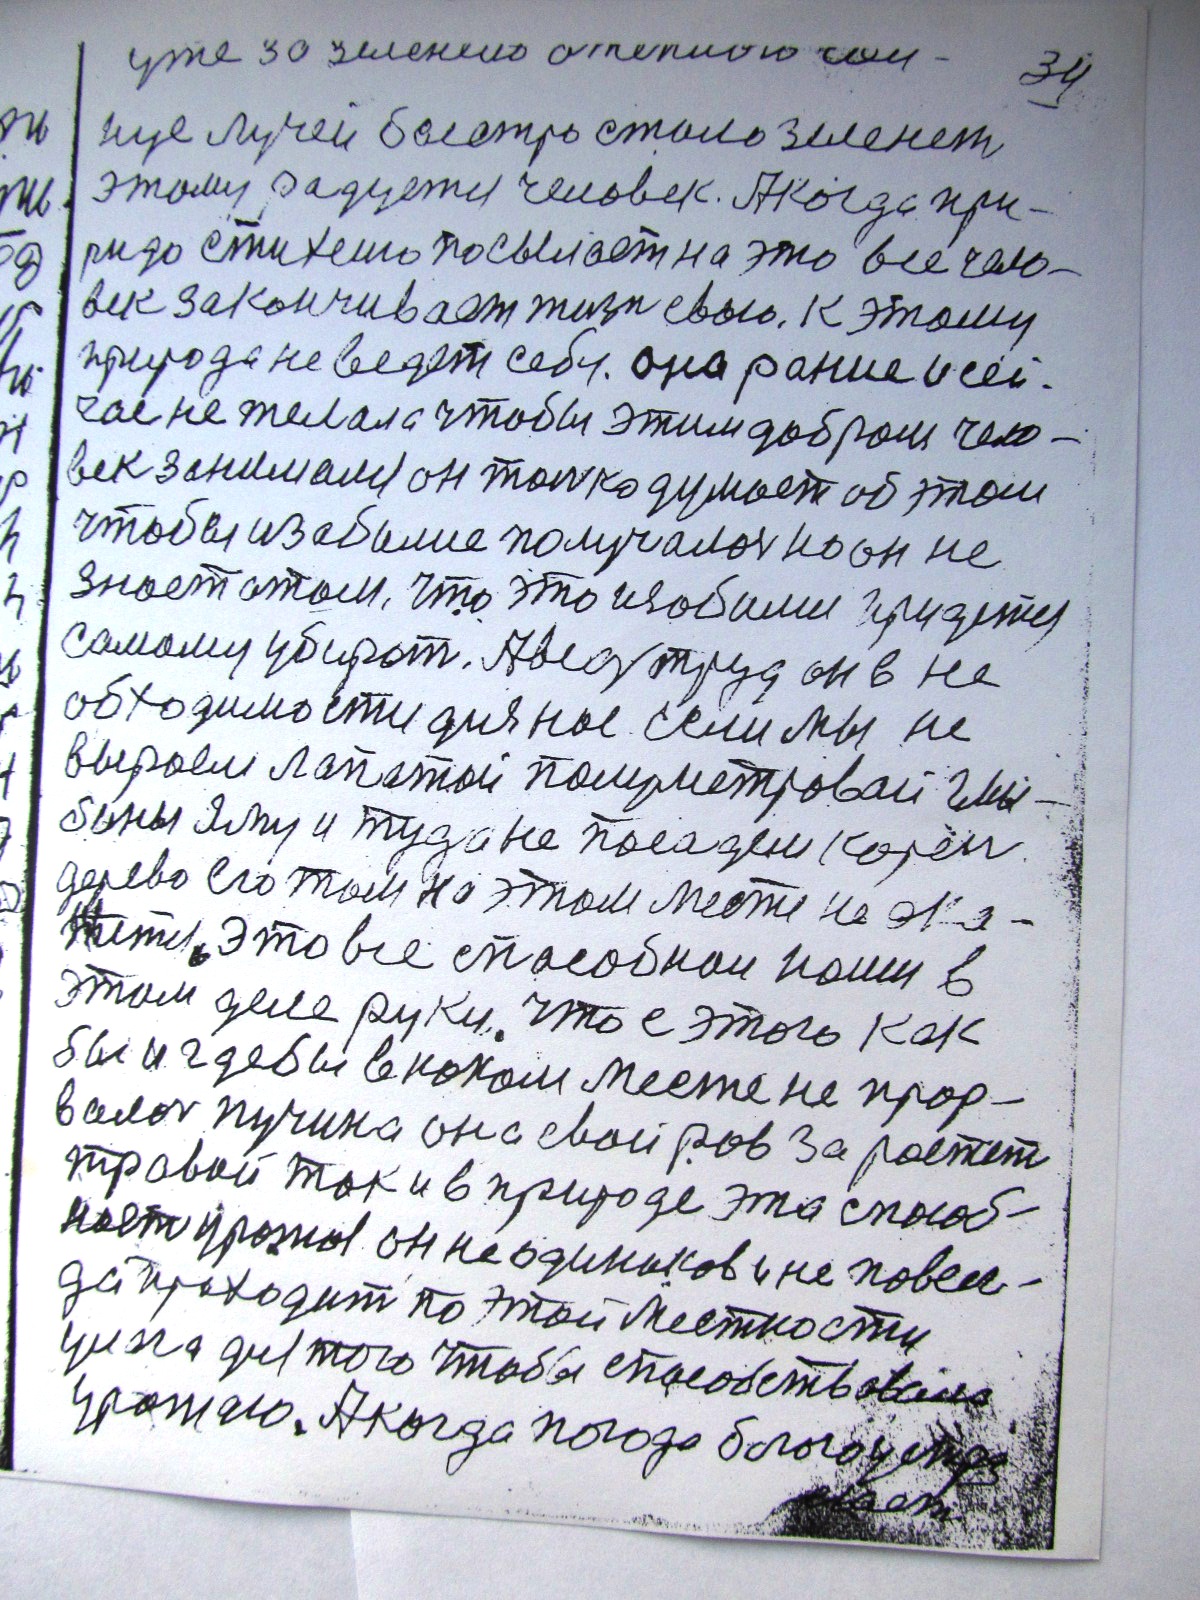 34
уже зо зеленело отепного сон-
нце лучей быстро стало зеленет
этому радуетя человек. А когда при-
рида стихешо посылает на это все чело-
век закончивает тизн свою. К этому
природа не ведет себя. она рание и сей-
час не желала чтобы этим добром чело-
век занимался он толко думает об этом
чтобы изабилие получалос но он не
знает отом, что это изобилии придетя
самому убират. А вед труд он в не
обходимости для нас если мы не
выроем лапатой полуметровай глы-
бины яму и туда не посадем корен
дерево его там на этом месте не ока-
жетя. Это все способнаи наши в
этом деле руки. Что с этого как
бы и где бы в каком месте не прор-
валос пучина она свой ров за растет
травой так и в природе эта способ-
ност урожая он не одинаков и не повез-
да проходит по этой местности
для того чтобы способствовало
урожаю. А когда погода благоустра
евает